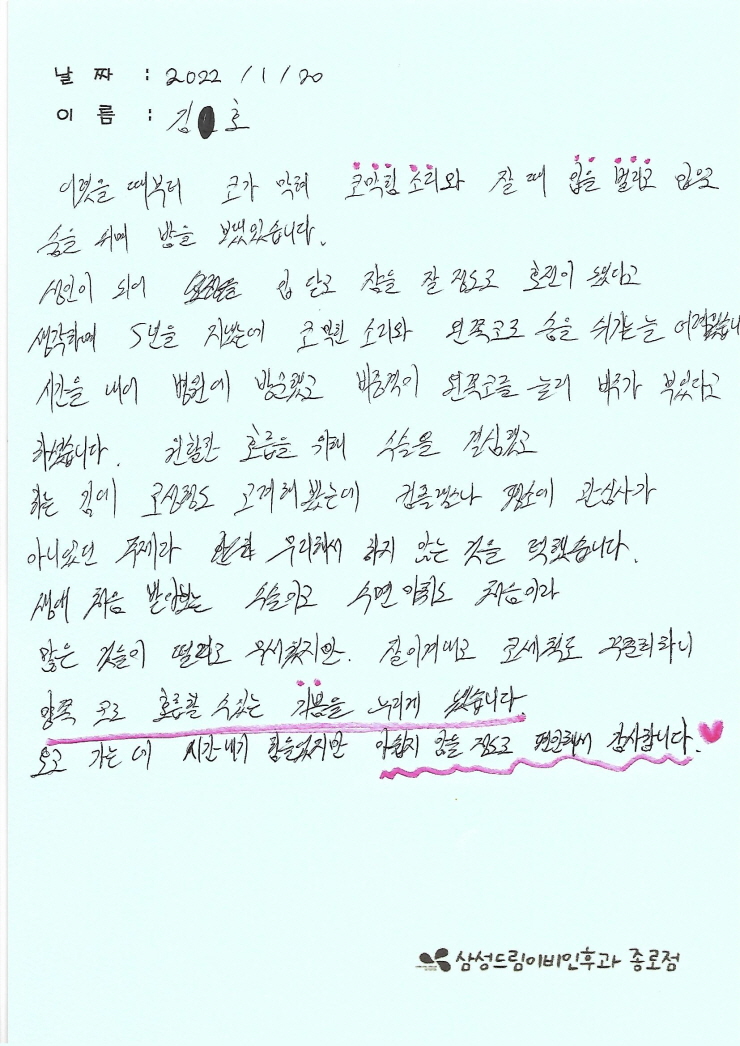 날 짜 : 2022 / 1 / 20
이 름 : 김 호
어렸을 때부터 코가 막혀 코막힘 소리와 잘 때 입을 벌리고 입으로
숨을 쉬며 밤을 보냈었습니다.
성인이 되어 입 닫고 잠을 잘 정도로 호전이 됐다고
생각하며 5년을 지냈는데 코 막힌 소리와 왼쪽코로 숨을 쉬기는 늘 어려웠습니
시간을 내어 병원에 방문했고 비중격이 왼쪽코를 눌러 비주가 부었다고
하셨습니다. 원활한 호흡을 위해 수술을 결심했고
하는 김에 코성형도 고려해 봤는데 컴플렉스나 평소에 관심사가
아니었던 주제라 무리해서 하지 않는 것을 택했습니다.
생애 처음 받아보는 수술이고 수면 마취도 처음이라
많은 것들이 떨리고 무서웠지만. 잘 이겨내고 코세척도 꾸준히하니
양쪽 코로 호흡할 수 있는 기쁨을 누리게 됐습니다.
오고 가는 데 시간내기 힘들었지만 아쉽지 않을 정도로 편안해서 감사합니다.
삼성드림이비인후과 종로점